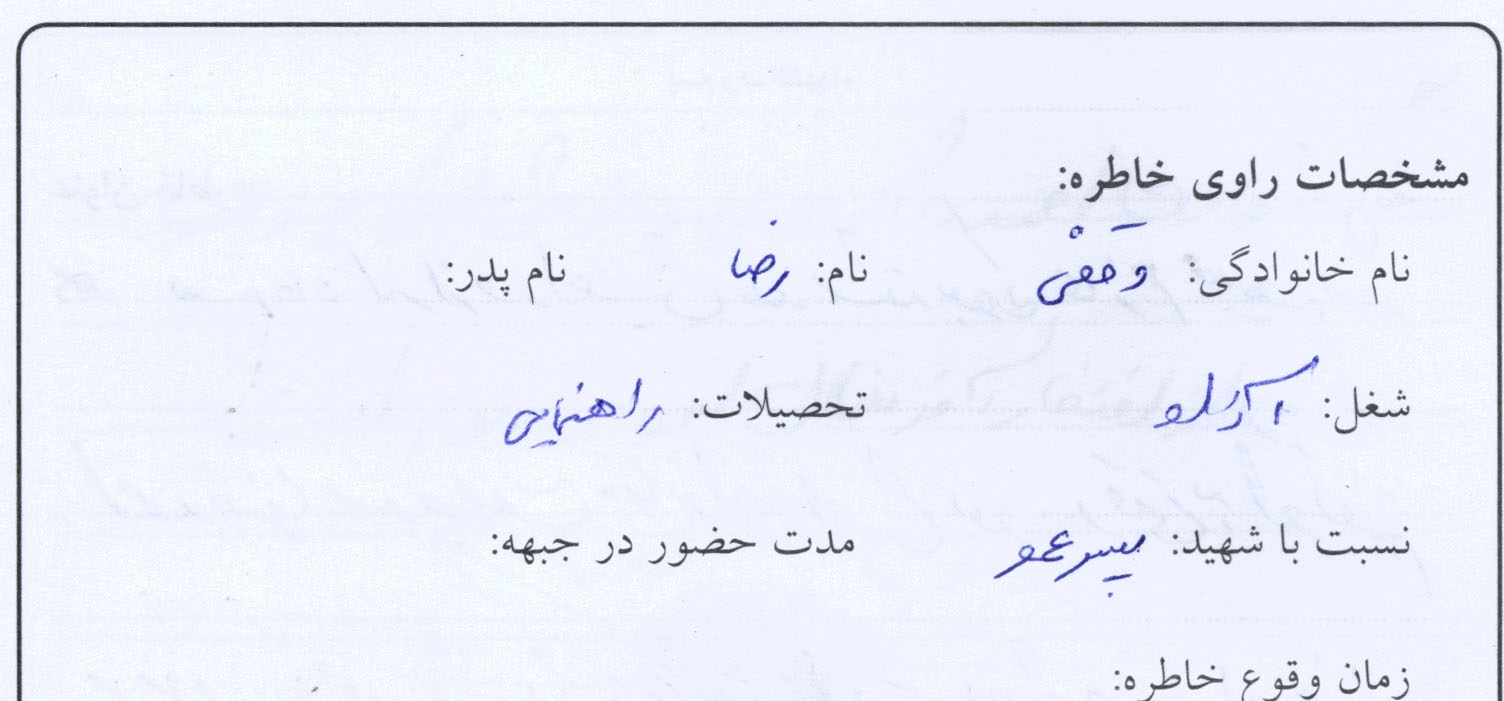 مشخصات راوی خاطره:
نام خانوادگی: وققی نام: رضا نام پدر:
شغل: تحصیلات: راهنمایی
نسبت با شهید: پسرعمو مدت حضور در جبهه:
زمان وقوع خاطره: